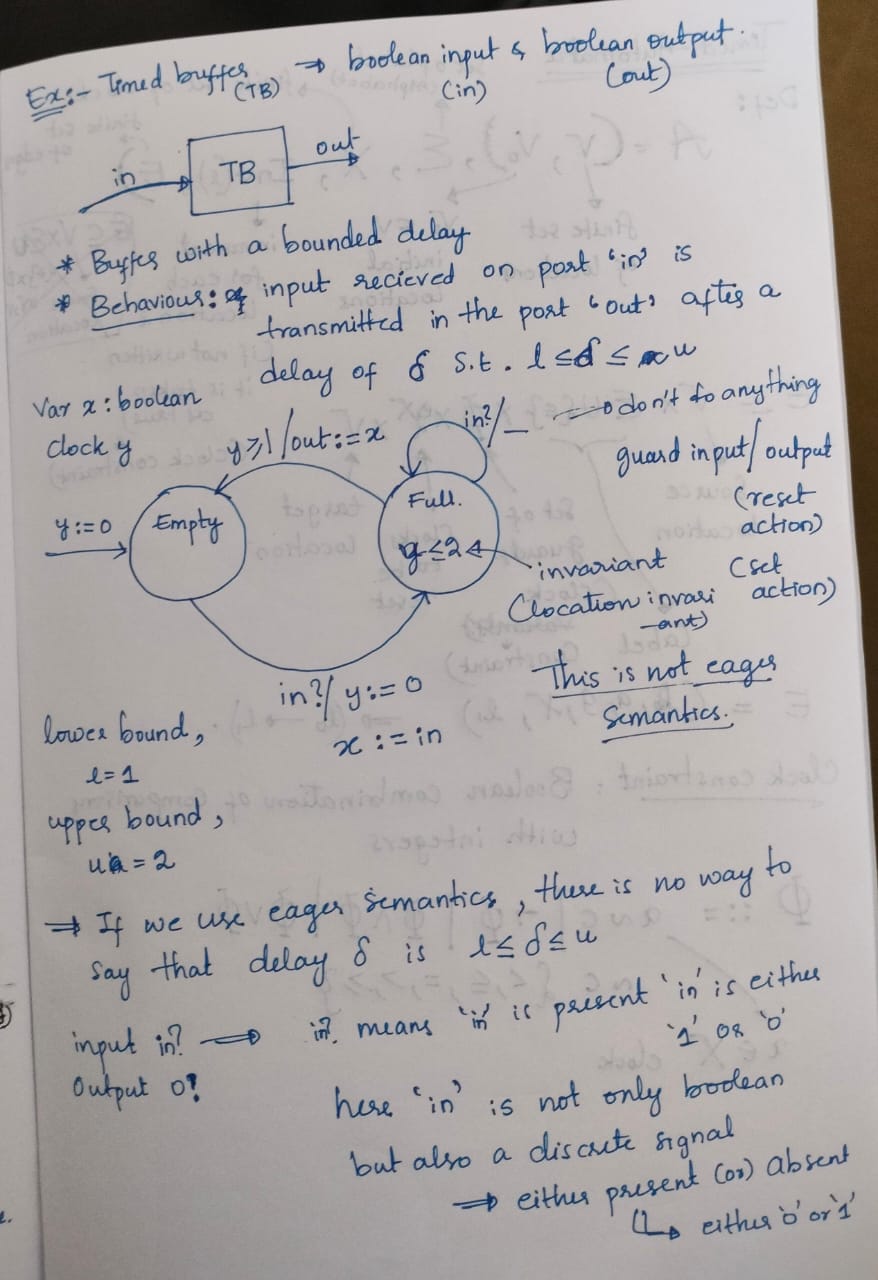 Ex:- Timed buffer (TB) ⇒ boolean input & boolean output.
(in) (out)
in TB out
* Buffer with a bounded delay
* Behaviour: input recieved on port 'in' is
transmitted in the port 'out' after a
delay of δ s.t. l ≤ δ ≤ u
Var x : boolean
clock y
y≥1/out:=x
in?/_ ⇒ don't do anything
guard input/output
(reset action)
(set action)
y:=0
Empty
Full.
y≤2
invariant
(location invari
-ant)
in?/ y:=0
x:=in
This is not eager
Semantics.
lower bound,
l=1
upper bound,
u = 2
⇒ If we use eager semantics, there is no way to
say that delay δ is l ≤ δ ≤ u
input in? ⇒ in? means 'in' is present 'in' is either
'1' or '0'
Output o!
here 'in' is not only boolean
but also a discrete signal
⇒ either present (or) absent
↳ either '0' or '1'